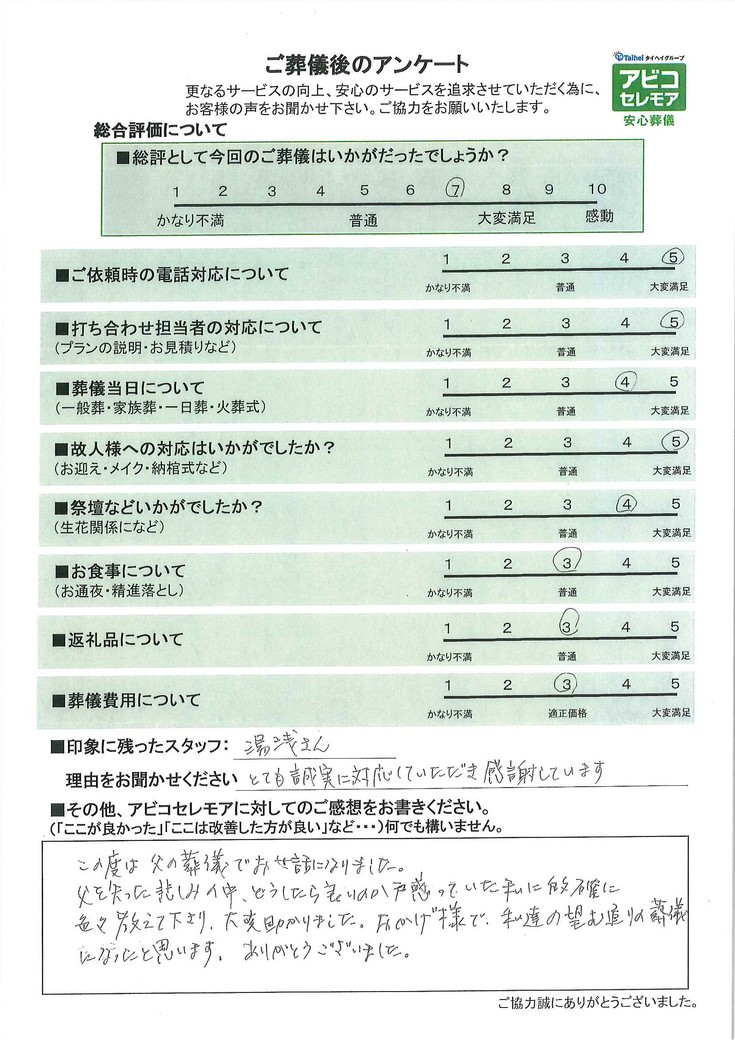 ご葬儀後のアンケート
Taihei タイヘイグループ
アビコ
セレモア
安心葬儀
更なるサービスの向上、安心のサービスを追求させていただく為に、
お客様の声をお聞かせ下さい。ご協力をお願いいたします。
総合評価について
■総評として今回のご葬儀はいかがだったでしょうか?
1 2 3 4 5 6 7 8 9 10
かなり不満 普通 大変満足 感動
■ご依頼時の電話対応について
1 2 3 4 5
かなり不満 普通 大変満足
■打ち合わせ担当者の対応について
(プランの説明・お見積りなど)
1 2 3 4 5
かなり不満 普通 大変満足
■葬儀当日について
(一般葬・家族葬・一日葬・火葬式)
1 2 3 4 5
かなり不満 普通 大変満足
■故人様への対応はいかがでしたか?
(お迎え・メイク・納棺式など)
1 2 3 4 5
かなり不満 普通 大変満足
■祭壇などいかがでしたか?
(生花関係になど)
1 2 3 4 5
かなり不満 普通 大変満足
■お食事について
(お通夜・精進落とし)
1 2 3 4 5
かなり不満 普通 大変満足
■返礼品について
1 2 3 4 5
かなり不満 普通 大変満足
■葬儀費用について
1 2 3 4 5
かなり不満 適正価格 大変満足
■印象に残ったスタッフ: 湯浅さん
理由をお聞かせください とても誠実に対応していただき感謝しています
■その他、アビコセレモアに対してのご感想をお書きください。
(「ここが良かった」「ここは改善した方が良い」など・・・)何でも構いません。
この度は父の葬儀でお世話になりました。
父を失った悲しみの中、どうしたら良いのか戸惑っていた私に的確に
色々教えて下さり、大変助かりました。おかげ様で、私達の望む通りの葬儀
になったと思います。ありがとうございました。
ご協力誠にありがとうございました。